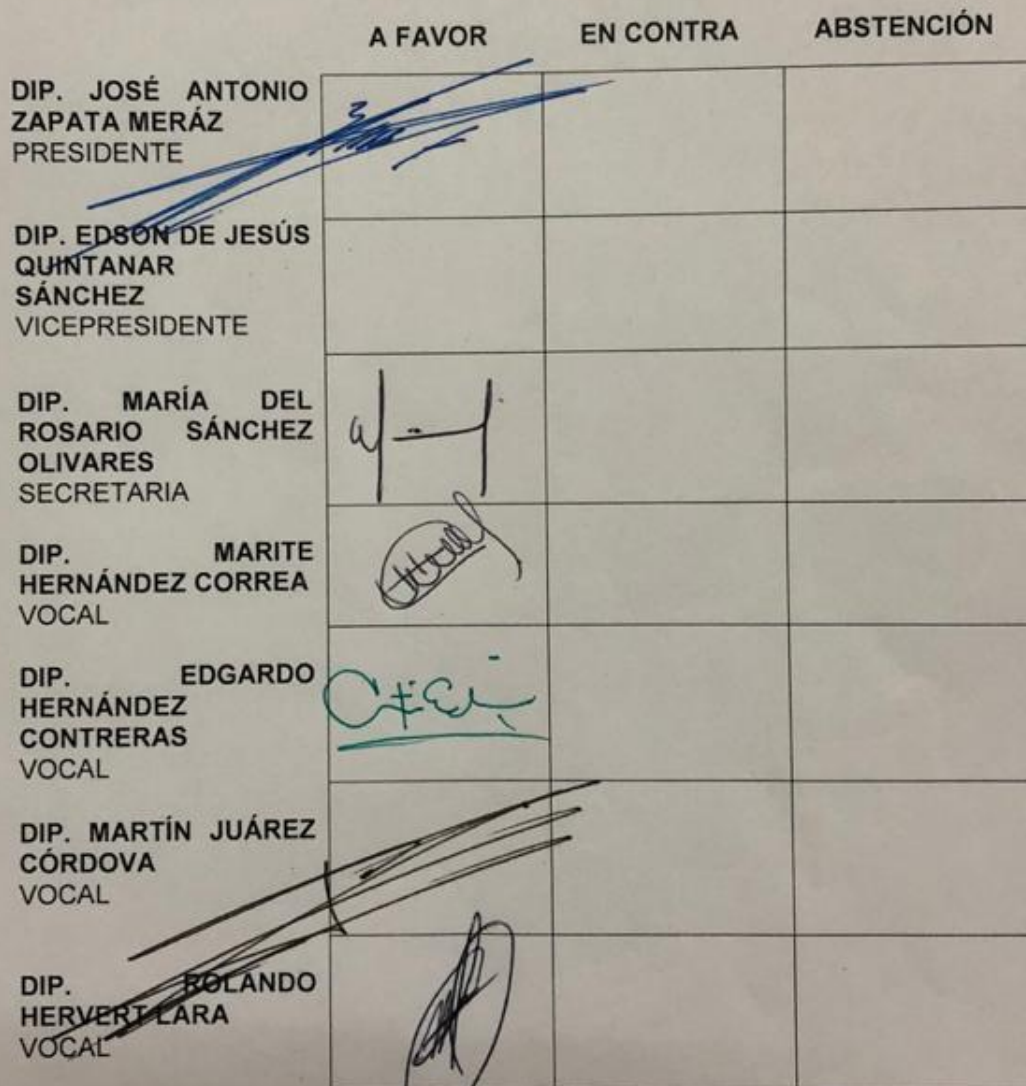 A FAVOR EN CONTRA ABSTENCIÓN
DIP. JOSÉ ANTONIO
ZAPATA MERÁZ
PRESIDENTE
DIP. EDSON DE JESÚS
QUINTANAR
SÁNCHEZ
VICEPRESIDENTE
DIP. MARÍA DEL
ROSARIO SÁNCHEZ
OLIVARES
SECRETARIA
DIP. MARITE
HERNÁNDEZ CORREA
VOCAL
DIP. EDGARDO
HERNÁNDEZ
CONTRERAS
VOCAL
DIP. MARTÍN JUÁREZ
CÓRDOVA
VOCAL
DIP. ROLANDO
HERVERT LARA
VOCAL